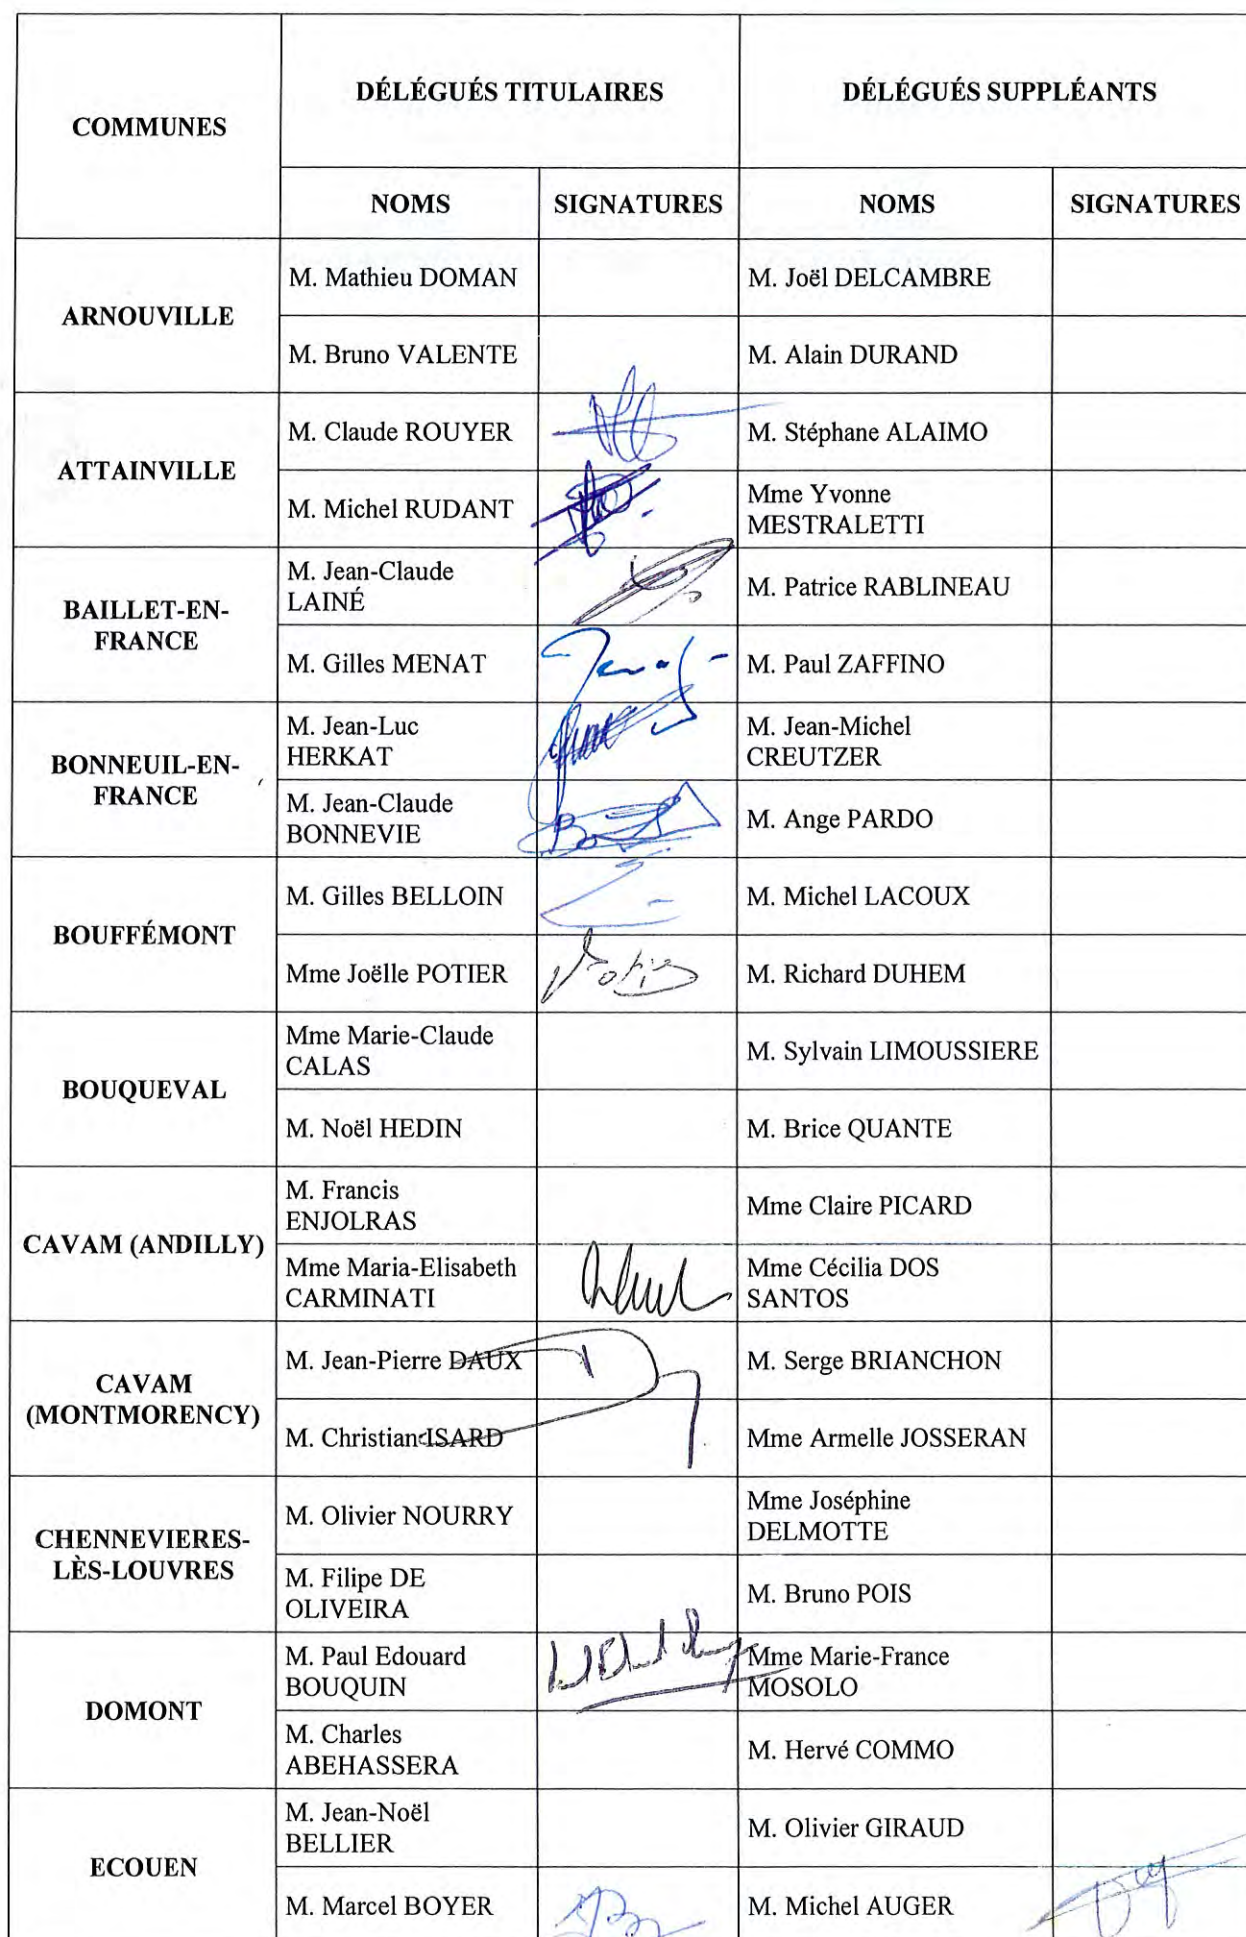 COMMUNES
DÉLÉGUÉS TITULAIRES
DÉLÉGUÉS SUPPLÉANTS
NOMS
SIGNATURES
NOMS
SIGNATURES
ARNOUVILLE
M. Mathieu DOMAN
M. Joël DELCAMBRE
M. Bruno VALENTE
M. Alain DURAND
ATTAINVILLE
M. Claude ROUYER
M. Stéphane ALAIMO
M. Michel RUDANT
Mme Yvonne
MESTRALETTI
BAILLET-EN-
FRANCE
M. Jean-Claude
LAINÉ
M. Patrice RABLINEAU
M. Gilles MENAT
M. Paul ZAFFINO
BONNEUIL-EN-
FRANCE
M. Jean-Luc
HERKAT
M. Jean-Michel
CREUTZER
M. Jean-Claude
BONNEVIE
M. Ange PARDO
BOUFFÉMONT
M. Gilles BELLOIN
M. Michel LACOUX
Mme Joëlle POTIER
M. Richard DUHEM
BOUQUEVAL
Mme Marie-Claude
CALAS
M. Sylvain LIMOUSSIERE
M. Noël HEDIN
M. Brice QUANTE
CAVAM (ANDILLY)
M. Francis
ENJOLRAS
Mme Claire PICARD
Mme Maria-Elisabeth
CARMINATI
Mme Cécilia DOS
SANTOS
CAVAM
(MONTMORENCY)
M. Jean-Pierre DAUX
M. Serge BRIANCHON
M. Christian ISARD
Mme Armelle JOSSERAN
CHENNEVIERES-
LÈS-LOUVRES
M. Olivier NOURRY
Mme Joséphine
DELMOTTE
M. Filipe DE
OLIVEIRA
M. Bruno POIS
DOMONT
M. Paul Edouard
BOUQUIN
Mme Marie-France
MOSOLO
M. Charles
ABEHASSERA
M. Hervé COMMO
ECOUEN
M. Jean-Noël
BELLIER
M. Olivier GIRAUD
M. Marcel BOYER
M. Michel AUGER